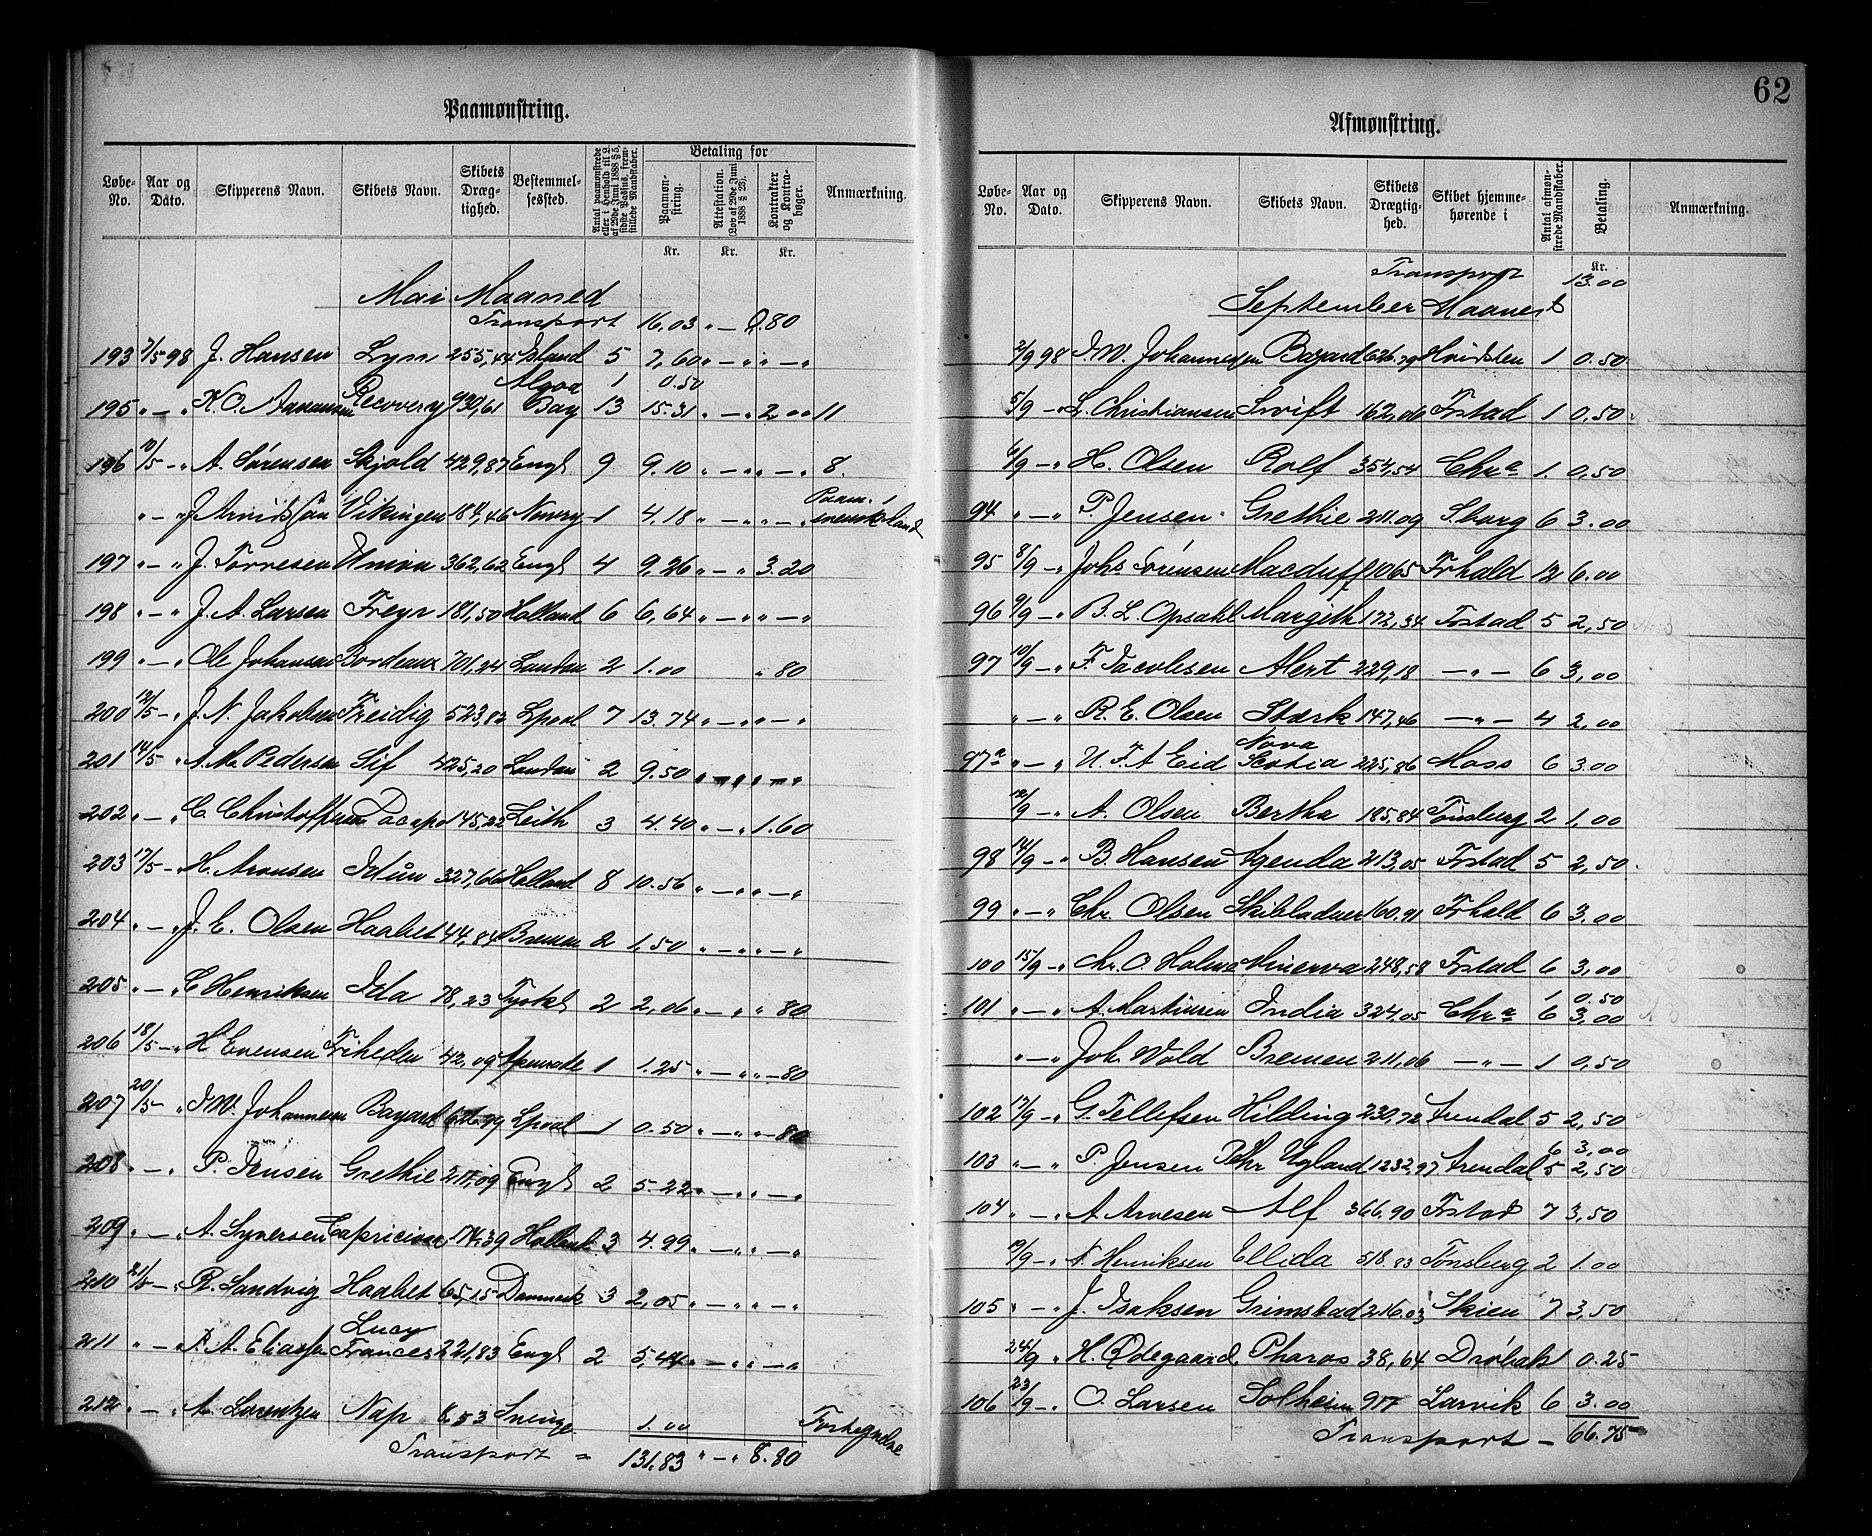 62
Paamønstring.
Løbe-No. Aar og Dato. Skipperens Navn. Skibets Navn. Skibets Drægtighed. Bestemmelsessted. Antal paamønstrede eller i Henhold til L. af 29de Juni 1888 § 5, sidste Passus, fremstillede Mandskaber. Betaling for Paamønstring. Attestation. (Lov af 29de Juni 1888 § 25). Kontrakter og Kontrabøger. Anmærkning.
Kr. Kr. Kr.
Mai Maaned
Transport 16,03 " — 0.80
193 7/5 98 J. Hansen Lyn 255,44 Island 5 7,60 " — " " — "
Algoa 1 0.50
195 " — " K. O. Aanensen Recovery 930,61 Bay 13 15.31 " — " 2.00 11
196 10/5 — " A. Sørensen Skjold 429,87 Engl 9 9.10 " — " " — " 8.
Paam. i
" — " J Arvidsson Vikingen 184,46 Newry 1 4.18 " — " " — "
197 " — " J. Torresen Union 362,62 Engl 4 9,26 " — " 3.20
198 " — " J. A. Larsen Freyr 181,50 Holland 6 6,64 " — " " — "
199 " — " Ole Johansen Bordeaux 701,24 London 2 1.00 " 80
200 12/5 — " J. N. Jakobsen Freidig 523,82 Lpool 7 13.74 " — " " — "
201 14/5 " A. M. Pedersen Sif 425,20 London 2 9.50 " — " " — "
202 " — " C Christoffersen Dacapo 145,22 Leith 3 4.40 " — " 1.60
203 17/5 — " H. Aronsen Idun 327,66 Holland 8 10.56 " — " " — "
204 " — " J. E. Olsen Haabet 44,84 Bremen 2 1,50 " — " " — "
205 " — " C Henriksen Ida 78,23 Tyskl 2 2,06 " — " " 80
206 18/5 — " H Evensen Friheden 42,09 Apenrade 1 1.25 " — " " — 80
207 20/5 — " I W. Johannesen Bayard 626.79 Lpool 1 0.50 " — " " — 80
208 " — " P. Jensen Grethie 211,09 Engl 2 5.22 " — " " — "
209 " — " A. Syversen Capricion 174.39 Holland 3 4.99 " — " " — "
210 21/5 — " R. Sandvig Haabet 65,15 Danmark 3 2,05 " — " " — "
Lucy
211 " — " P. A. Eliassen Frances 221,83 Engl 2 5,44 " — " " — "
212 " — " A. Lorentzen Nap 8,53 1.00
Transport = 131.83 " — " 8.80
Afmønstring.
Løbe-No. Aar og Dato. Skipperens Navn. Skibets Navn. Skibets Drægtighed. Skibet hjemmehørende i Antal afmønstrede Mandskaber. Betaling. Anmærkning.
Kr.
Transport 13.00
September Maaned
2/9 98 I W. Johannessen Bayard 626.79 Hvidsten 1 0.50
5/9 — " L. Christiansen Swift 162,06 Frstad 1 0,50
6/9 — " H. Olsen Rolf 354,54 Chra 1. 0,50
94 " — " P. Jensen Grethie 211.09 S.borg 6 3.00
95 8/9 — " Johs Sørensen Macduff 1065 Frhald 12 6.00
96 9/9 — " B. L. Opsahl Margeth 172,34 Frstad 5 2,50
97 10/9 — " F. Jacobsen Alert 229,18 — " — 6 3,00
" — " R. E. Olsen Stærk 147,46 — " — 4 2,00
Nova
97a " — " N. F. A Eid Scotia 225,86 Moss 6 3.00
12/9 — " A. Olsen Bertha 185,84 Tönsberg 2 1,00
98 14/9 — " B. Hansen Agenda 213,05 Frstad 5 2,50
99 " — " Chr. Olsen Skibladner 160,91 Frhald 6 3,00
100 15/9 — " Chr. O. Holm Minerva 248,58 Frstad 6 3,00
1 0.50
101 " — " A. Martinsen India 324,05 Chra 6 3,00
" — " Joh. Wold Bremen 211,06 — " — 1 0,50
102 17/9 — " G. Tellefsen Hilding 230,72 Arendal 5 2,50
6 3,00
103 " — " P. Jensen Ugland 1232,97 Arendal 5 2,50
104 " — " A. Arvesen Alf 366.90 Frstad 7 3,50
19/9 — " N. Henriksen Ellida 518.83 Tönsberg 2 1.00
105 " — " J. Isaksen Grimstad 216.03 Skien 7 3,50
24/9 " H. Ødegaard Pharos 38,64 Drøbak 1 0.25
106 23/9 — " O. Larsen Solheim 917 Larvik 6 3.00
Transport — 66.75